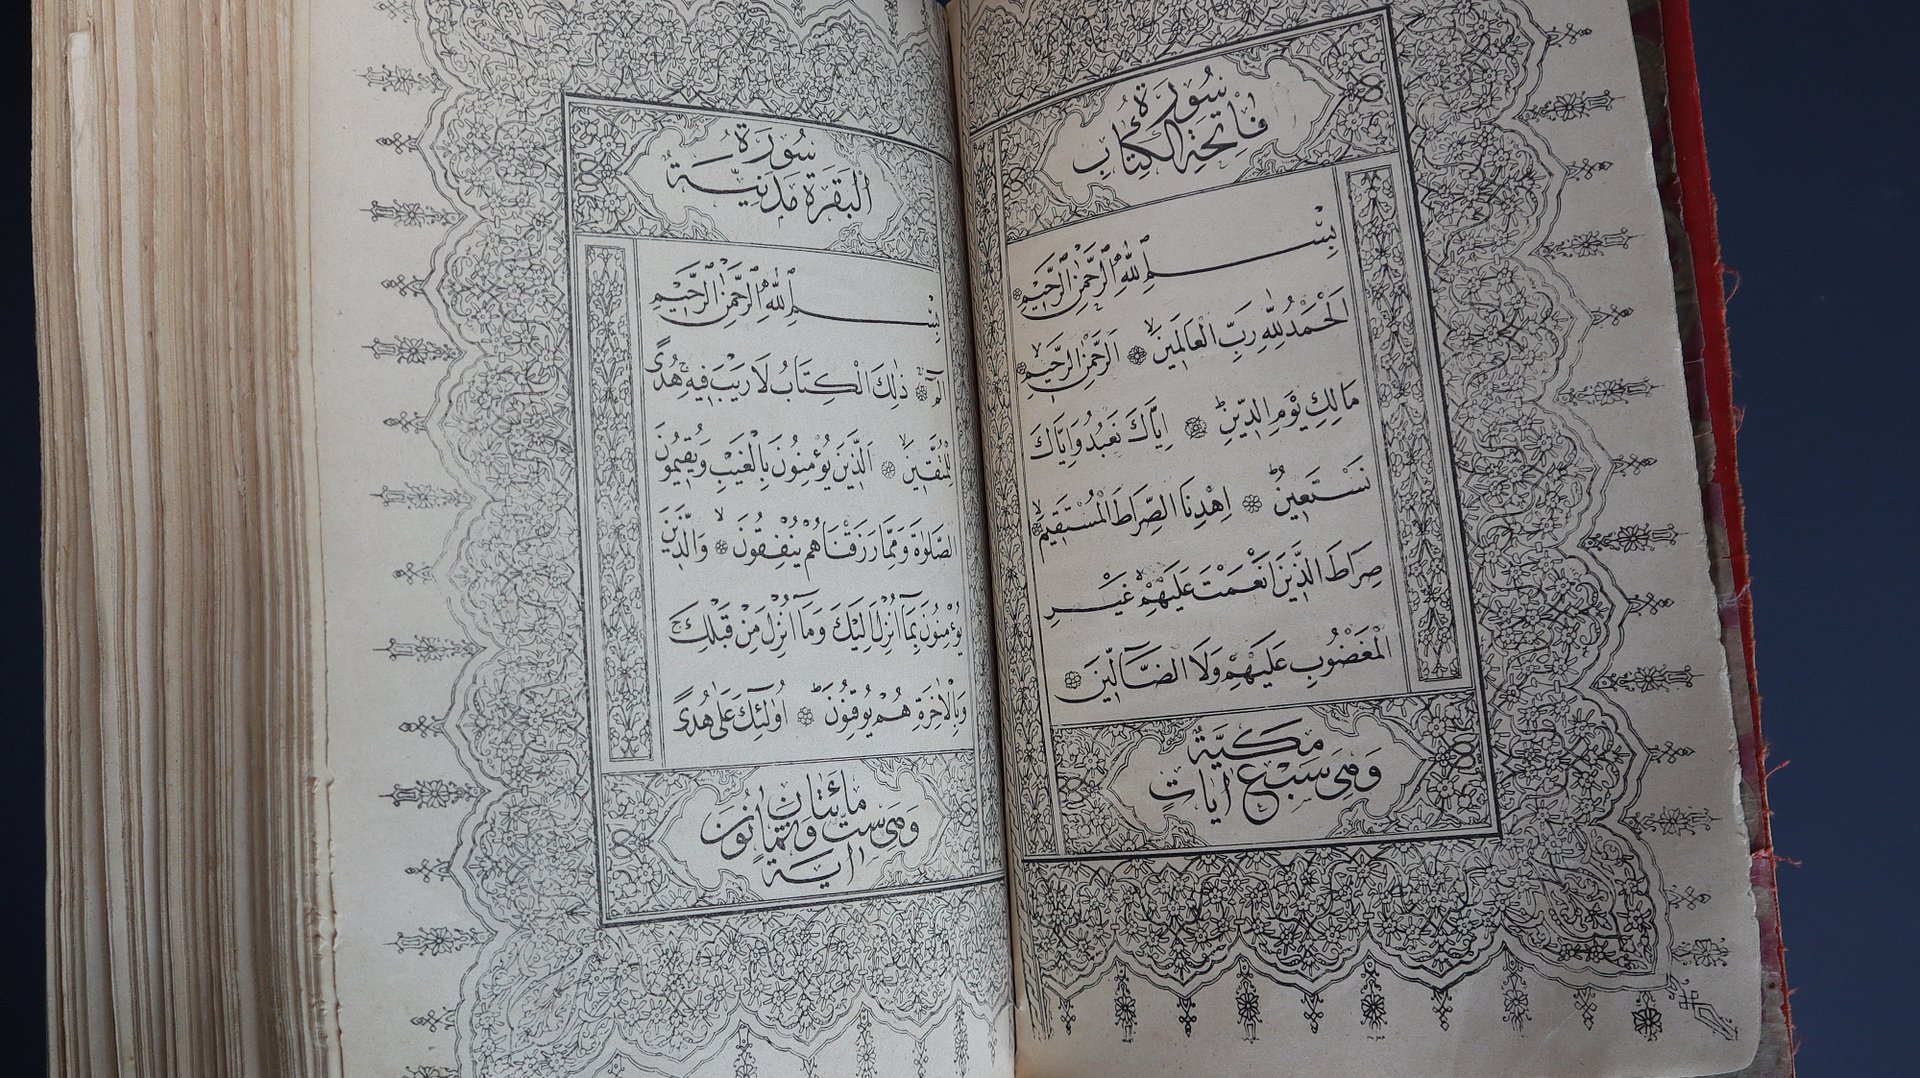 سُورَةُ
فَاتِحَةِ الْكِتَابِ
بِسْمِ ٱللّٰهِ ٱلرَّحْمٰنِ ٱلرَّحِيمِ ۞
اَلْحَمْدُ لِلّٰهِ رَبِّ الْعَالَمِينَۙ ۞ اَلرَّحْمٰنِ الرَّحِيمِۙ ۞
مَالِكِ يَوْمِ الدِّينِۜ ۞ اِيَّاكَ نَعْبُدُ وَاِيَّاكَ
نَسْتَعِينُۜ ۞ اِهْدِنَا الصِّرَاطَ الْمُسْتَقِيمَۙ ۞
صِرَاطَ الَّذِينَ اَنْعَمْتَ عَلَيْهِمْۙ غَيْرِ
الْمَغْضُوبِ عَلَيْهِمْ وَلَا الضَّٓالِّينَ ۞
مَكِّيَّةٌ
وَهِيَ سَبْعُ اٰيَاتٍ
سُورَةُ
الْبَقَرَةِ مَدَنِيَّةٌ
بِسْمِ ٱللّٰهِ ٱلرَّحْمٰنِ ٱلرَّحِيمِ
الٓمٓۚ ۞ ذٰلِكَ الْكِتَابُ لَا رَيْبَۚ فِيهِۚ هُدًى
لِلْمُتَّقِينَۙ ۞ اَلَّذِينَ يُؤْمِنُونَ بِالْغَيْبِ وَيُقِيمُونَ
الصَّلٰوةَ وَمِمَّا رَزَقْنَاهُمْ يُنْفِقُونَۙ ۞ وَالَّذِينَ
يُؤْمِنُونَ بِمَٓا اُنْزِلَ اِلَيْكَ وَمَٓا اُنْزِلَ مِنْ قَبْلِكَۚ
وَبِالْاٰخِرَةِ هُمْ يُوقِنُونَۜ ۞ اُولٰٓئِكَ عَلٰى هُدًى
مِائَتَانِ
وَهِيَ سِتٌّ وَثَمَانُونَ
اٰيَةً